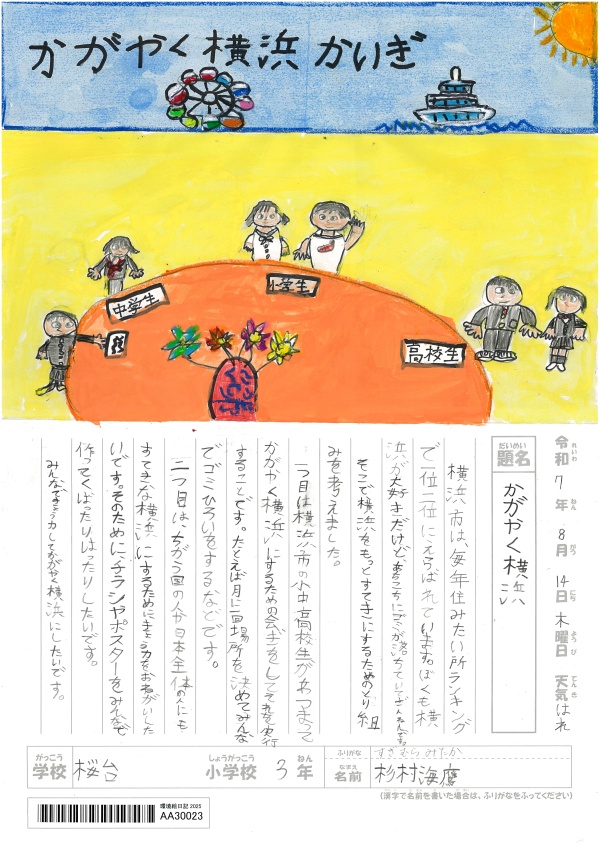 かがやく横浜かいぎ
中学生
小学生
高校生
令和7年8月14日木曜日 天気はれ
れいわ ねん がつ にち ようび てんき
だいめい
題名
かがやく横浜
横浜市は、毎年住みたい所ランキング
で一位二位にえらばれています。ぼくも横
浜が大好きだけどあちこちにゴミが落ちていてざんねんです。
そこで横浜をもっとすてきにするためのとり組
みを考えました。
一つ目は横浜市の小中高校生があつまって
かがやく横浜にするための会ぎをしてそれを実行
することです。たとえば月に一回場所を決めてみんな
でゴミひろいをするなどです。
二つ目は、ちがう国の人が日本全体の人にも
すてきな横浜にするためにきょう力をおねがいした
いです。そのために、チラシやポスターをみんなで
作ってくばったりはったりしたいです。
みんなできょう力してかがやく横浜にしたいです。
がっこう
学校
桜台
しょうがっこう
小学校
3
ねん
年
ふりがな
すぎむらみたか
なまえ
名前
杉村海鷹
(漢字で名前を書いた場合は、ふりがなをふってください)
環境絵日記 2025
AA30023